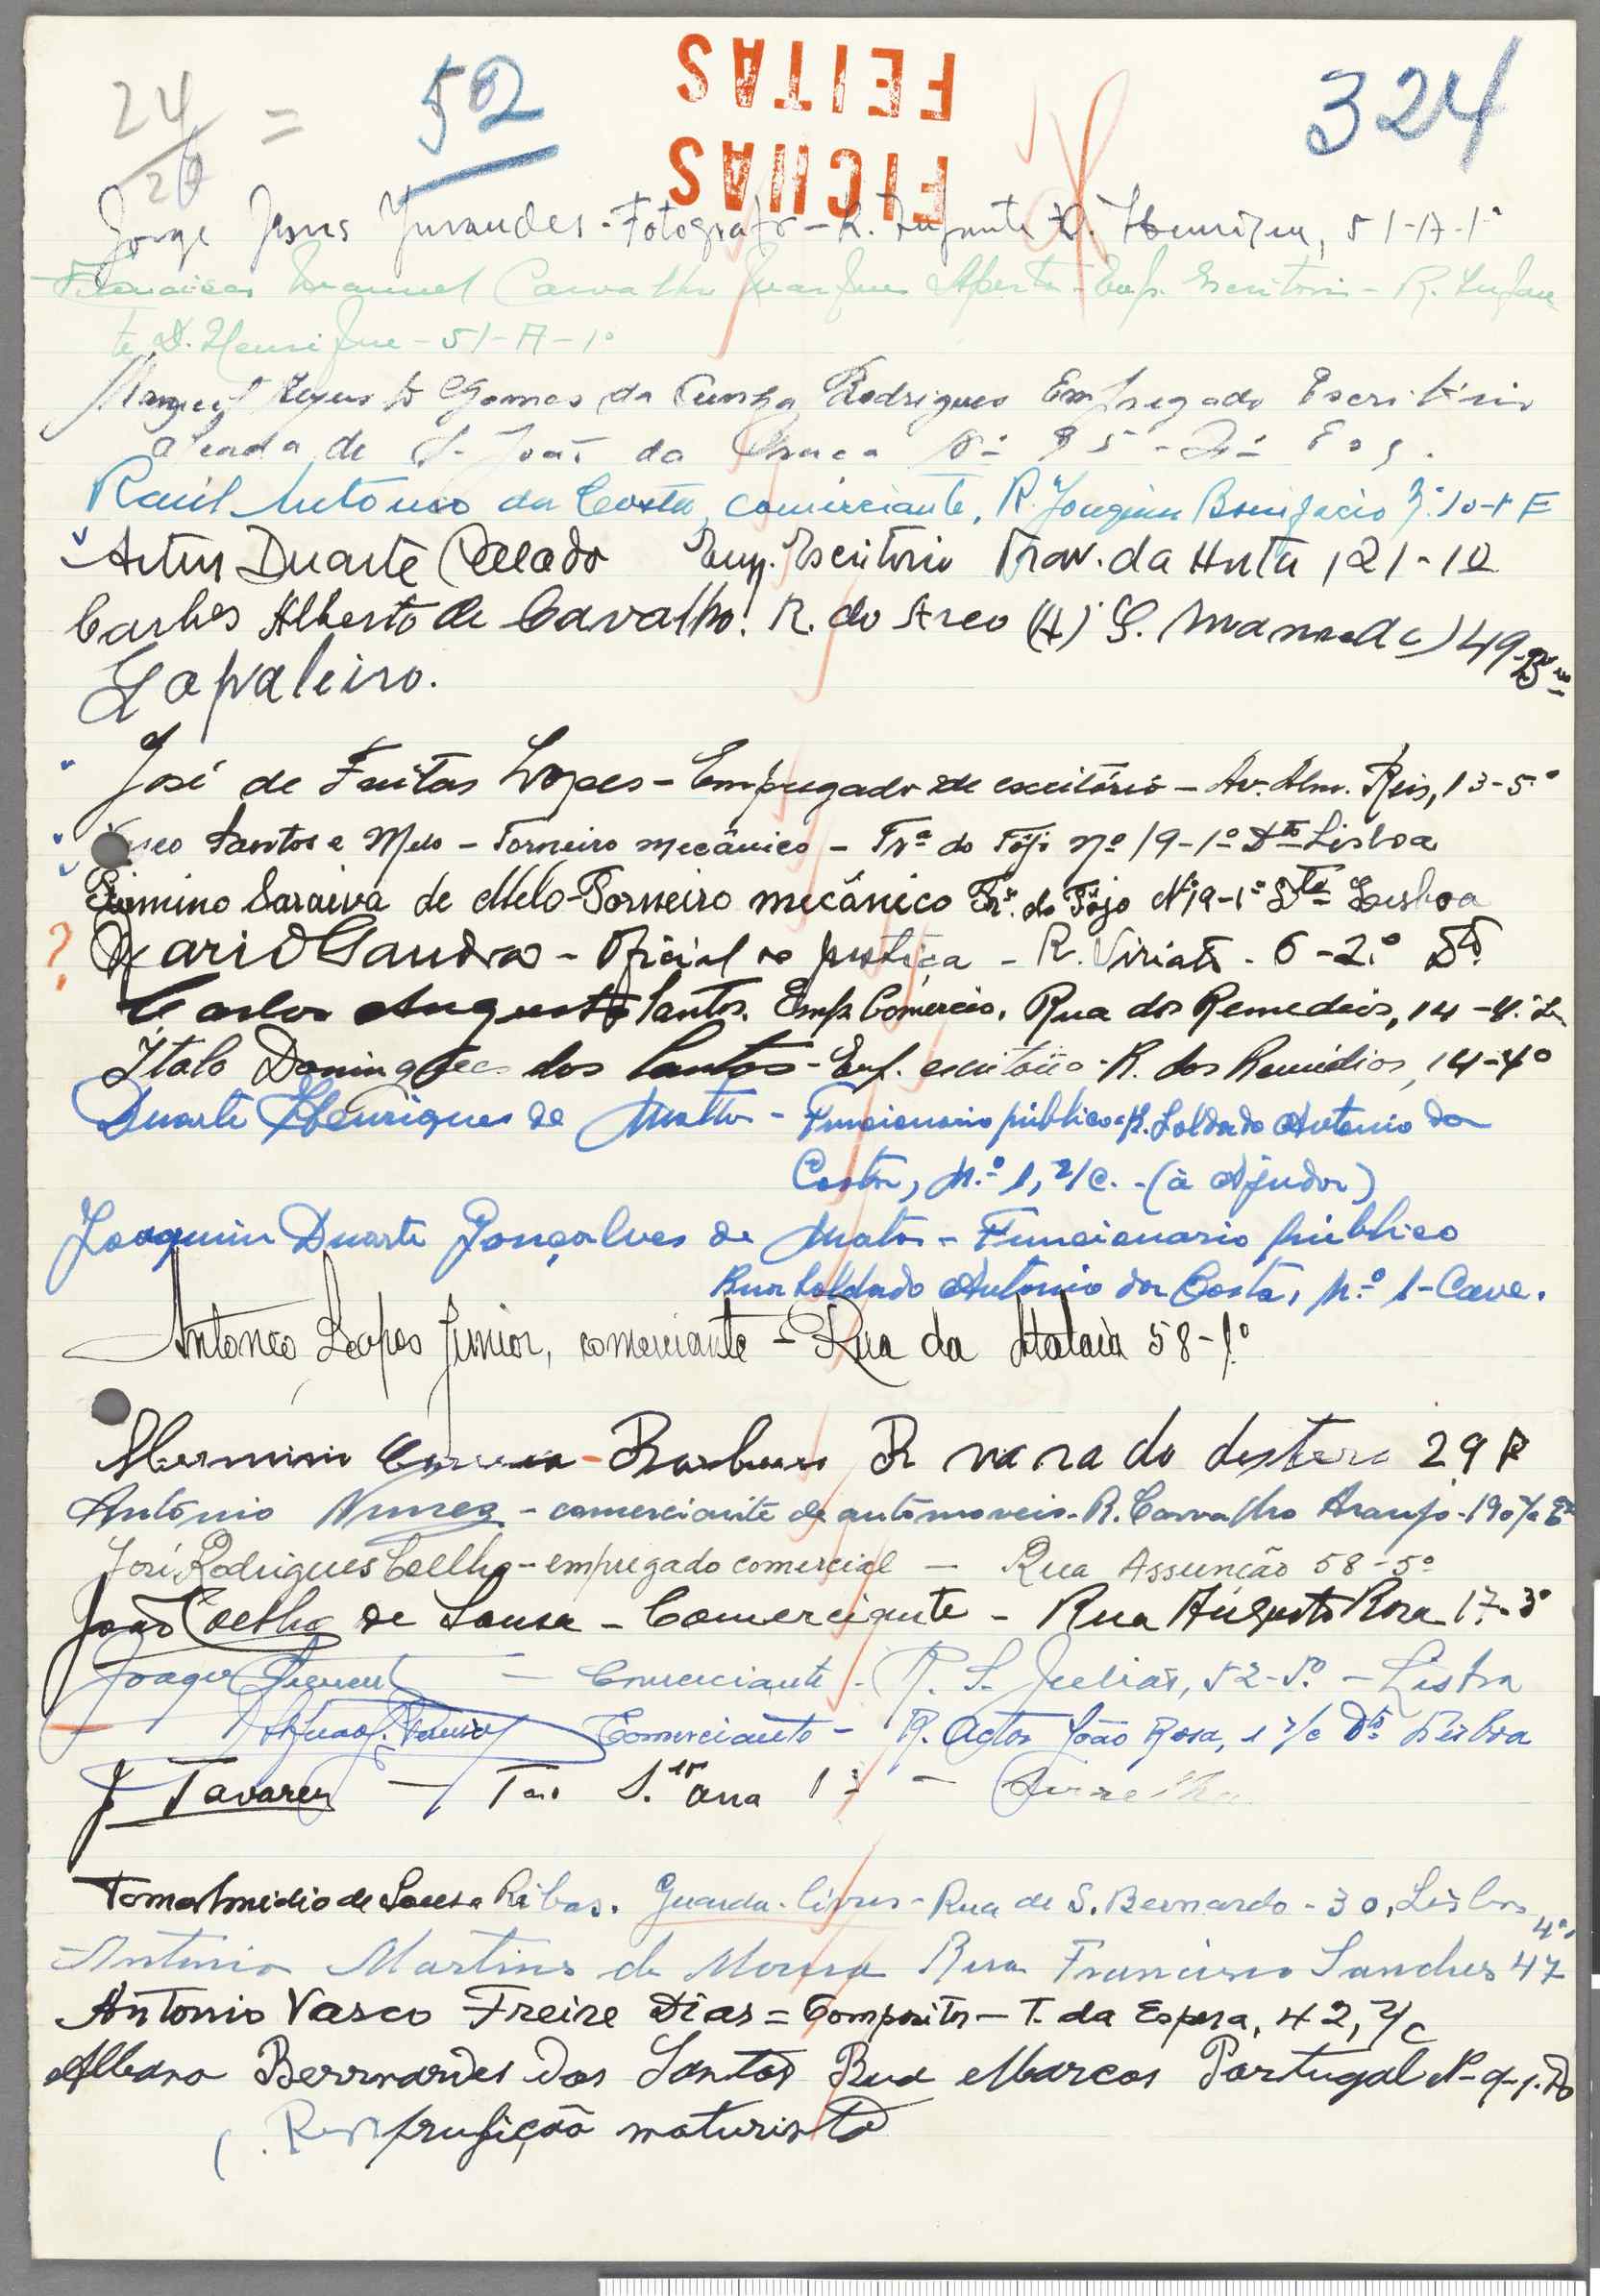 24/26 = 52 324
FICHAS FEITAS
Jorge Jesus - Fotografo - R. Infante D. Henrique, 51-A-1º
Manuel Carvalho Aperta - Emp. Escritorio - R. Infan
te D. Henrique - 51-A-1º
Gomes da Cunha Rodrigues Empregado Escritório
de S. João da Praça Nº 95 - 2º Esq.
Raúl António da Costa, comerciante, R. Joaquim Bonifacio 10-1º E
Artur Duarte Emp. Escritorio Trav. da Horta, 21-1º
Carlos Alberto de Carvalho. R. do Arco (A) S. Mamede) 49-
Sapateiro.
José de Freitas Lopes - Empregado de escritório - Av. Alm. Reis, 13-5º
Santos e Melo - Torneiro mecânico - Trª do Fôjo nº 19-1º Dto Lisboa
Firmino Saraiva de Melo - Torneiro mecânico Trª. do Fôjo Nº 19-1º Dto Lisboa
? Gandra - Oficial de justiça - R. Viriato - 6-2.º Dto
Carlos Augusto Santos. Emp. Comercio. Rua dos Remedios, 14-4º
Ítalo Domingues dos Santos - Emp. escritório - R. dos Remédios, 14-4º
Duarte Henriques de Mattos - Funcionario público - R. Soldado Antonio da
Costa, N.º 1, r/c. - (à Ajuda)
Joaquim Duarte Gonçalves de Matos - Funcionario público
Rua Soldado Antonio da Costa, N.º 1 - Cave.
Antonio Lopes Junior, comerciante - Rua da Atalaia 58-1º
Herminio Correia - Barbeiro R do desterro 29
António Nunes - comerciante de automoveis - R. Carvalho Araujo - 190 r/c Eº
José Rodrigues Coelho - empregado comercial - Rua Assunção 58-5º
João Coelho de Sousa - Comerciante - Rua Augusto Rosa 17-3º
- Comerciante - R. S. Julião, 52-5º - Lisboa
Comerciante - R. Actor João Rosa, 1 r/c Dto Lisboa
J. Tavares - S. ana 1
Tomaz Emidio de Sousa Ribas. Guarda-livros - Rua de S. Bernardo - 30, Lisboa
Antonio Martins de Moura Rua Francisco Sanches 47 4º
Antonio Vasco Freire Dias = Compositor - T. da Espera, 42, r/c
Albano Bernardes dos Santos Rua Marcos Portugal Nº 9-1. Dº